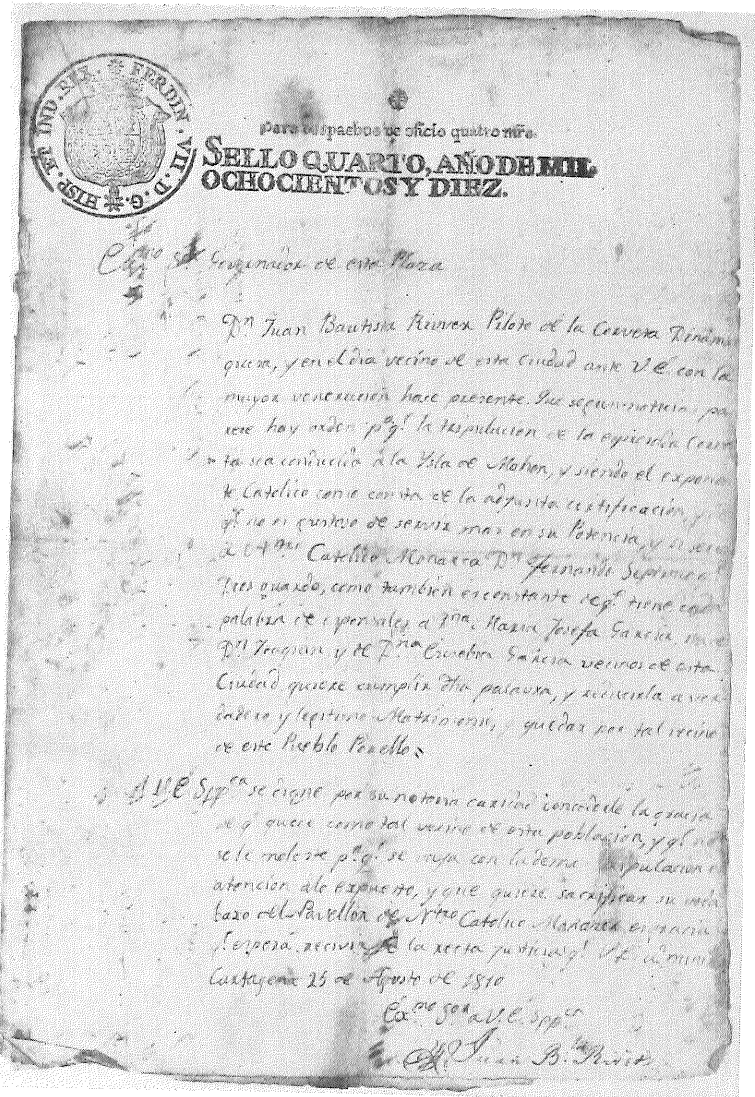 HISP. ET IND. REX. FERDIN. VII. D. G.
Para despachos de oficio quatro mrs.
SELLO QUARTO, AÑO DE MIL
OCHOCIENTOS Y DIEZ.
Exmo Sor Governador de esta Plaza
Dn Juan Bautista Piloto de la Corveta Dinamar
quesa, y en el dia vecino de esta Ciudad ante V.E. con la
mayor veneracion hace presente: Que segun noticias pa
rece hay orden pa. q.e la tripulacion de la expresada Corve
ta sea conducida á la Ysla de Mahon, y siendo el exponen
te Catolico como consta de la adjunta certificacion, y
q.e no es gustoso de servir mas en su Potencia, y si
a Ntro Catolico Monarca Dn Fernando Septimo
Dios guarde, como tambien es constante de q.e tiene dada
palabra de esponsales a Dna Maria Josefa Garcia,
Dn Joaquin y de Dna Garcia vecinos de esta
Ciudad quiere cumplir dha palabra, y reducirla a ver
dadero y legitimo Matrimonio, y quedar por tal vecino
de este Pueblo Por ello
A V.E. Suppca se digne por su notoria caridad concederle la gracia
de q.e quede como tal vecino de esta poblacion, y q.e no
se le moleste pa. q.e se vaya con la demas tripulacion en
atencion á lo expuesto, y que quiere sacrificar su vida
baxo el Pavellon de Ntro Catolico Monarca
q.e espera recivir de la recta justicia q.e V.E.
Cartagena 25 de Agosto de 1810
Exmo Sor a V.E. Suppca
Juan Bta